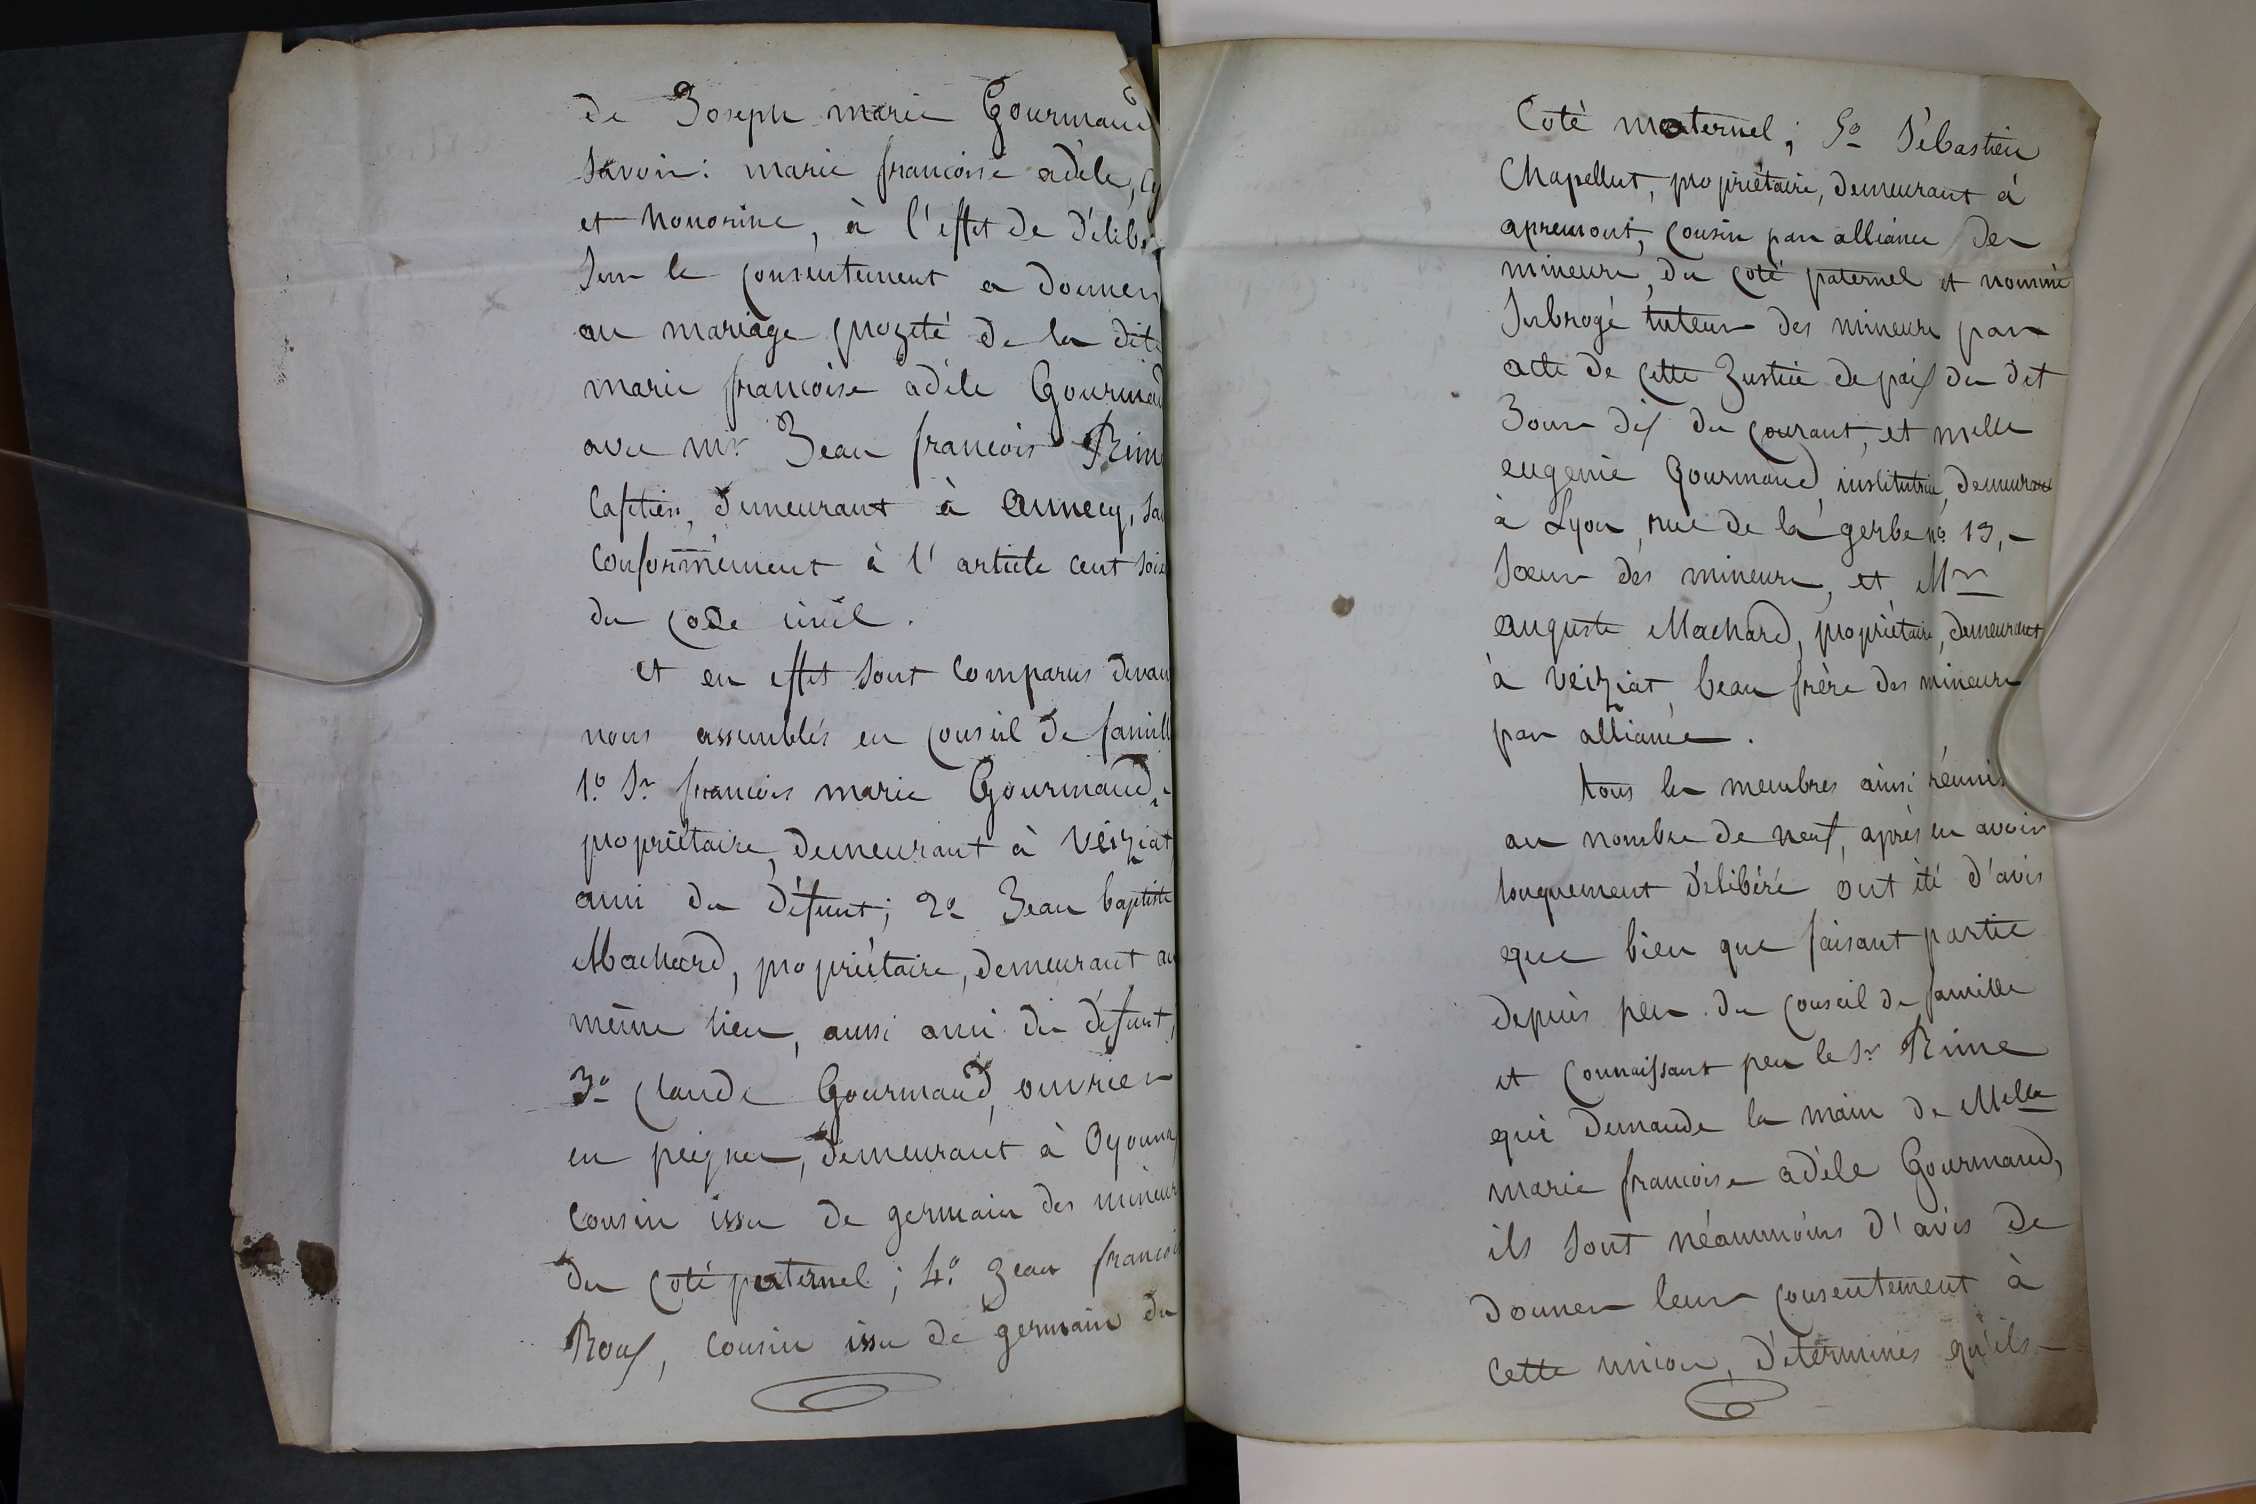 de Joseph marie Gourmand
Savoir: marie françoise adèle,
et honorine, à l'effet de délibé
Sur le consentement a donner
au mariage projeté de la dite
marie françoise adèle Gourmand
avec mr. Jean francois Rime
Cafetier, demeurant à annecy,
conformément à l'article cent soix
du code civil.
et en effet sont comparus devan
nous assemblés en conseil de famill
1.º Sr francois marie Gourmand,
propriétaire, demeurant à veiziat
ami du défunt; 2º Jean baptiste
Machard, propriétaire, demeurant au
même lieu, aussi ami du défunt,
3º Claude Gourmand, ouvrier
en peignes, demeurant à Oyonna
cousin issu de germain des mineur
du coté paternel; 4.º Jean francois
Roux, cousin issu de germain du
Coté maternel; 5º Sébastien
Chapellut, propriétaire, demeurant à
apremont, cousin par alliance des
mineurs, du coté paternel et nommé
Subrogé tuteur des mineurs par
acte de cette Justice de paix du dit
Jour dix du courant, et melle
eugenie Gourmand, institutrice, demeurant
à Lyon, rue de la gerbe nº 13,
Sœur des mineurs, et Mr
auguste Machard, propriétaire, demeurant
à veiziat, beau frère des mineurs
par alliance.
tous les membres ainsi réunis
au nombre de neuf, après en avoir
longuement délibéré ont été d'avis
que bien que faisant partie
depuis peu du Conseil de famille
et Connaissant peu le Sr Rime
qui demande la main de Melle
marie françoise adèle Gourmand,
ils sont néammoins d'avis de
donner leur consentement à
cette union, déterminés qu'ils